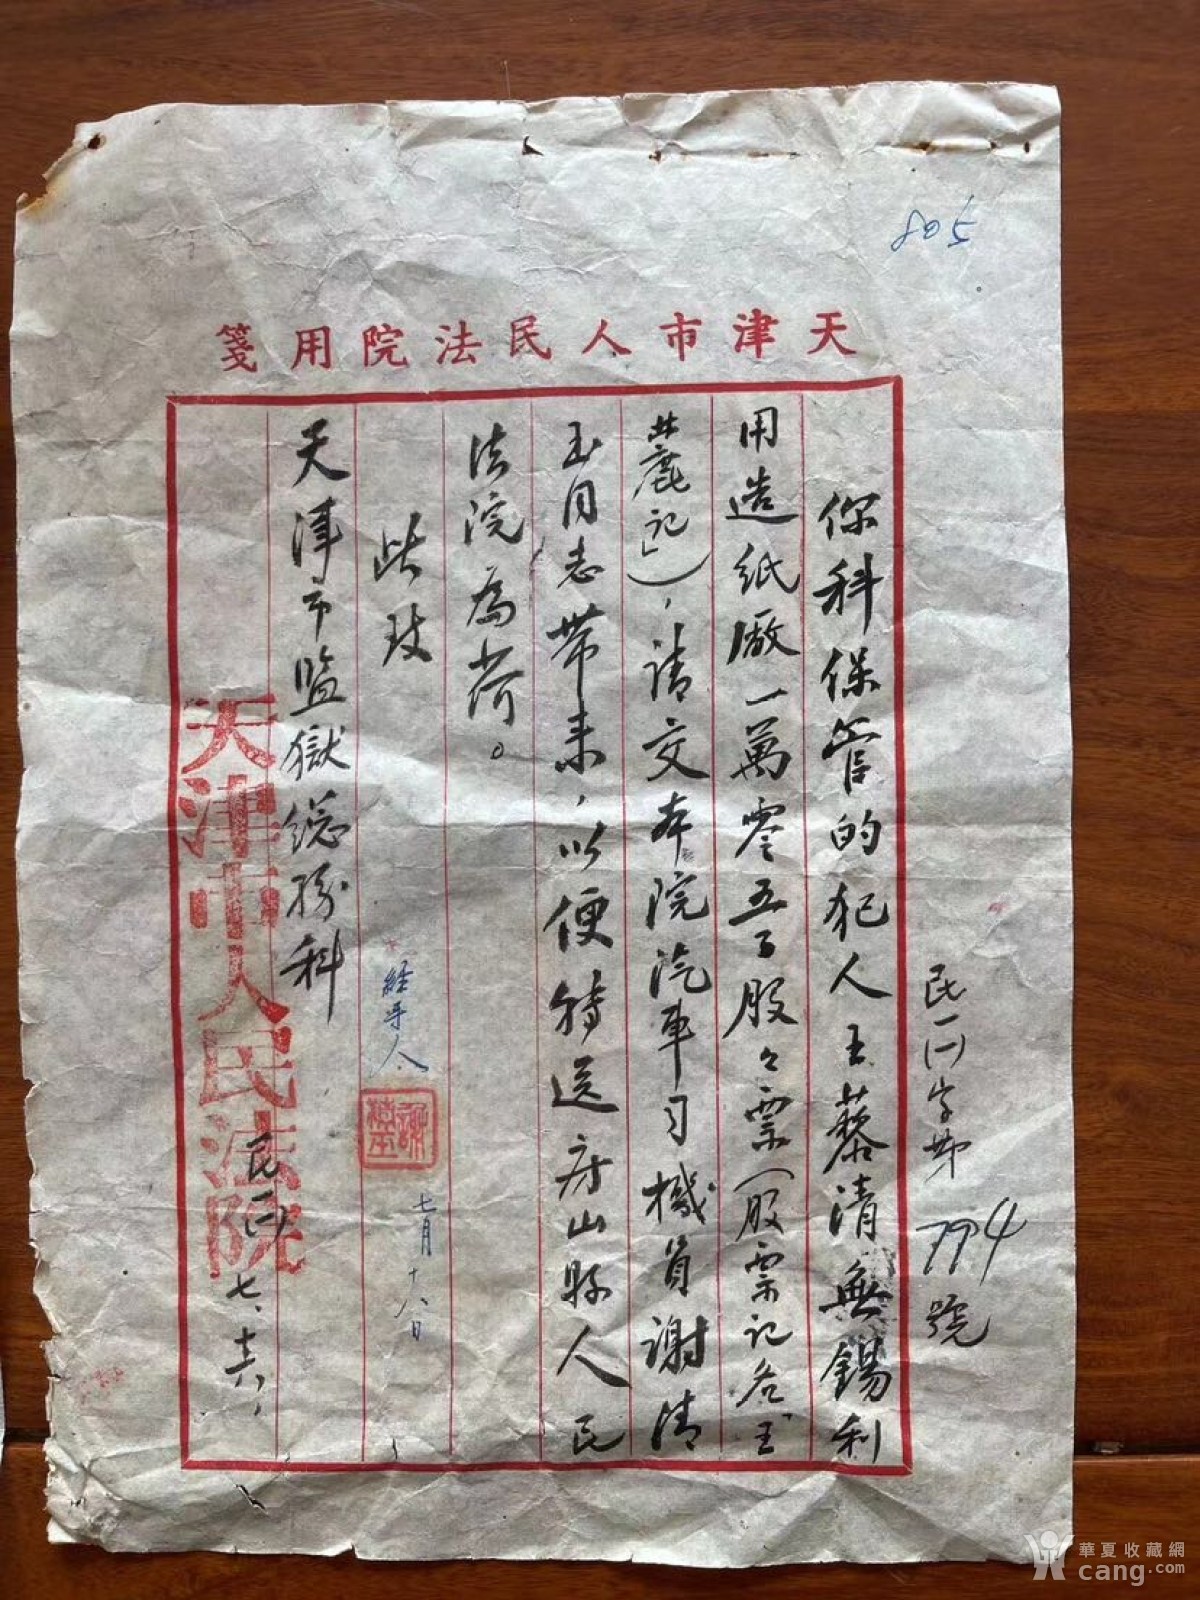 805
天津市人民法院用箋
民一(一)字第794號
你科保管的犯人王藜清無錫利
用造紙廠一萬零五百股々票(股票記名「王
麓記」),請交本院汽車司機員謝清
玉同志帶来,以便轉送房山縣人民
法院為荷。
此致
經手人
七月十八日
天津市監獄總務科
天津市人民法院
民一(一)七、十六、
華夏收藏網
cang.com